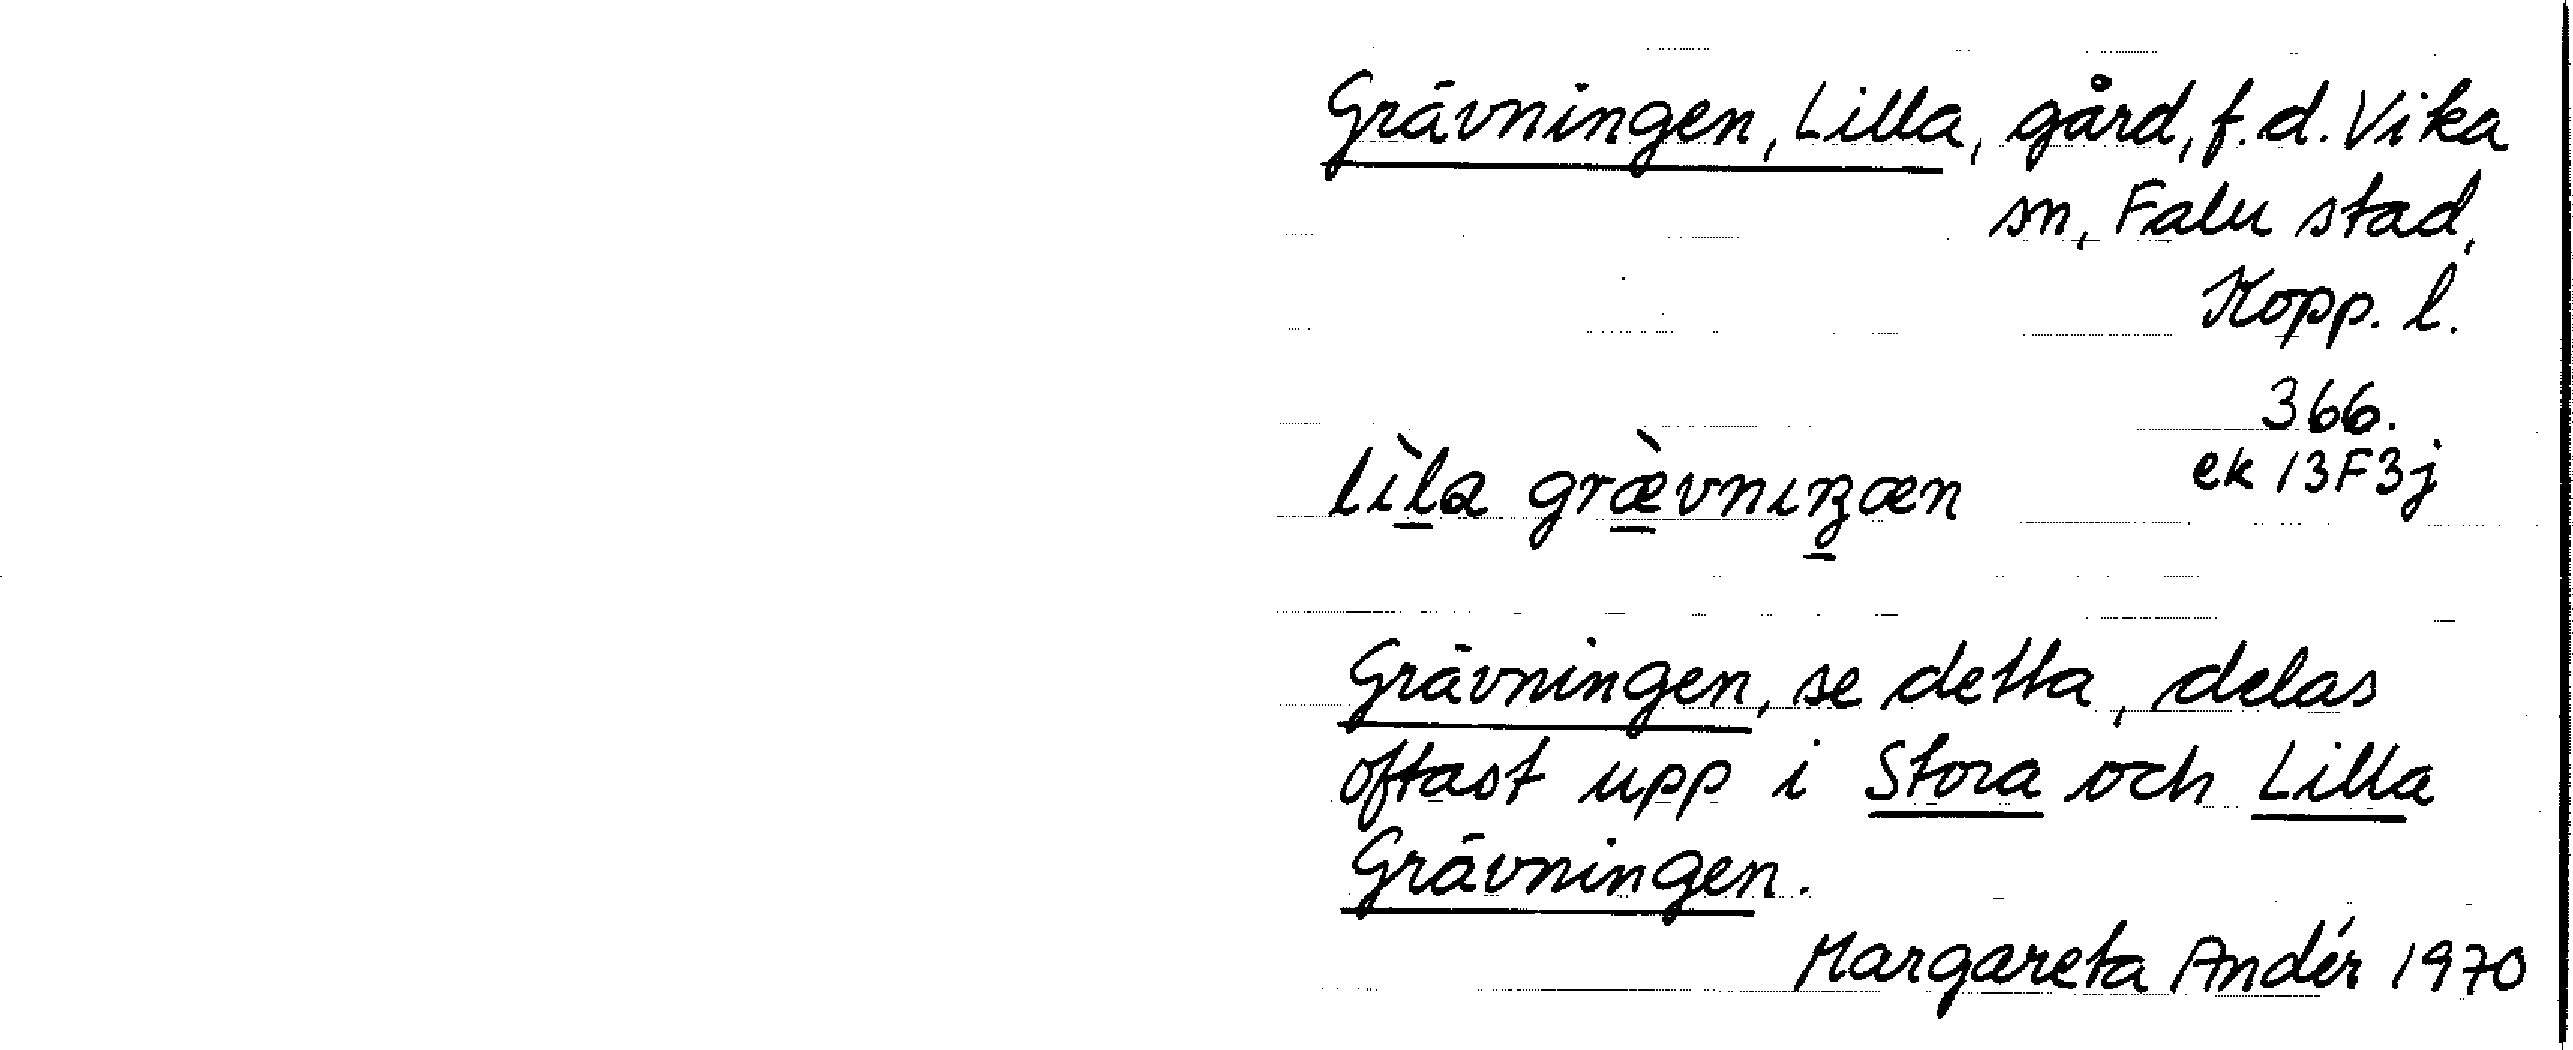 Grävningen, Lilla, gård, f.d. Vika
sn, Falu stad,
Kopp. l.
366.
ek 13F3j
lìla græ̀vnıŋæn
Grävningen, se detta, delas
oftast upp i Stora och Lilla
Grävningen.
Margareta Andér 1970